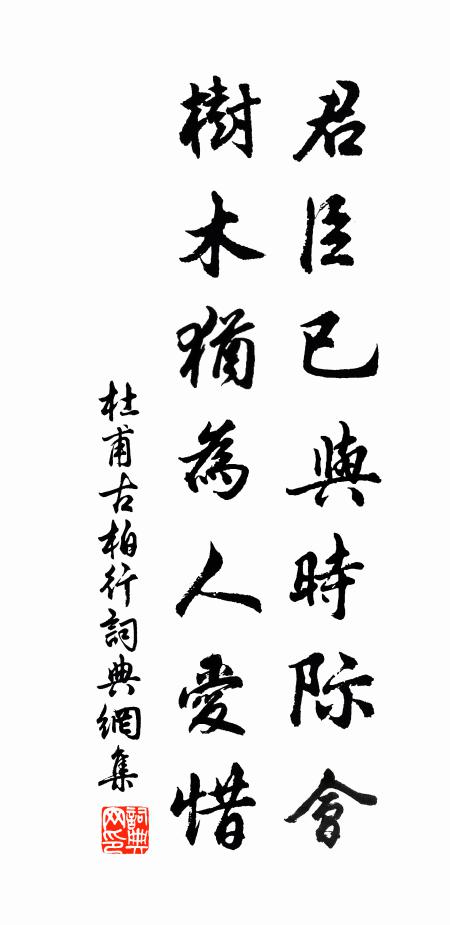 君臣已與時際會
樹木猶為人愛惜
杜甫古柏行詞典網集
詞典網印